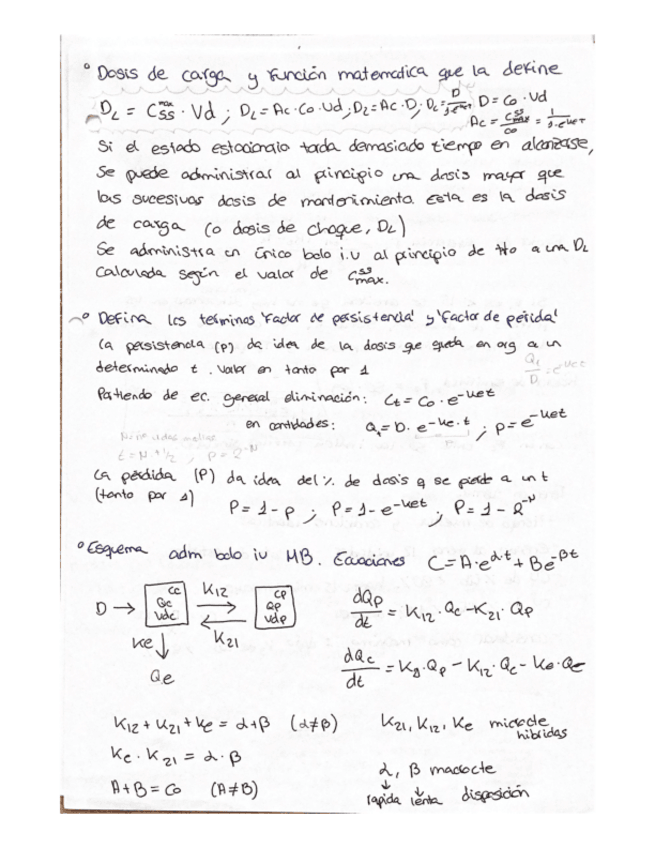 ° Dosis de carga y función matemática que la define
D_L = C_ss^max · Vd ; D_L = Ac · Co · Vd ; D_L = Ac · D ; D_L = D/1-e^-keτ D = Co · Vd
Ac = C_max^ss/Co = 1/1-e^-keτ
Si el estado estacionario tarda demasiado tiempo en alcanzarse,
Se puede administrar al principio una dosis mayor que
las sucesivas dosis de mantenimiento. Esta es la dosis
de carga (o dosis de choque, D_L)
Se administra en único bolo i.v al principio de tto a una D_L
calculada según el valor de C_max^ss.
° Defina los términos 'Factor de persistencia' y 'Factor de pérdida'
La persistencia (p) da idea de la dosis que queda en org a un
determinado t. Valor en tanto por 1
Partiendo de ec. general eliminación: Ct = Co · e^-ket
en cantidades: Q_t = D · e^-ke·t ; p = e^-ket
t = N · t1/2 , p = 2^-N
La pérdida (P) da idea del % de dosis q se pierde a un t
(tanto por 1)
P = 1 - p ; P = 1 - e^-ket ; P = 1 - 2^-N
° Esquema adm bolo iv MB. Ecuaciones C = A·e^α·t + Be^-βt
D → Cc Qc Vdc K12 K21 Cp Qp Vdp
dQp/dt = K12 · Qc - K21 · Qp
Ke ↓
Qe
dQc/dt = K · Qp - K12 · Qc - Ke · Qc
K12 + K21 + Ke = α + β (α≠β)
K21, K12, Ke microcte
híbridas
Ke · K21 = α · β
α, β macrocte
A + B = Co (A≠B)
↓ rápida ↓ lenta disposición